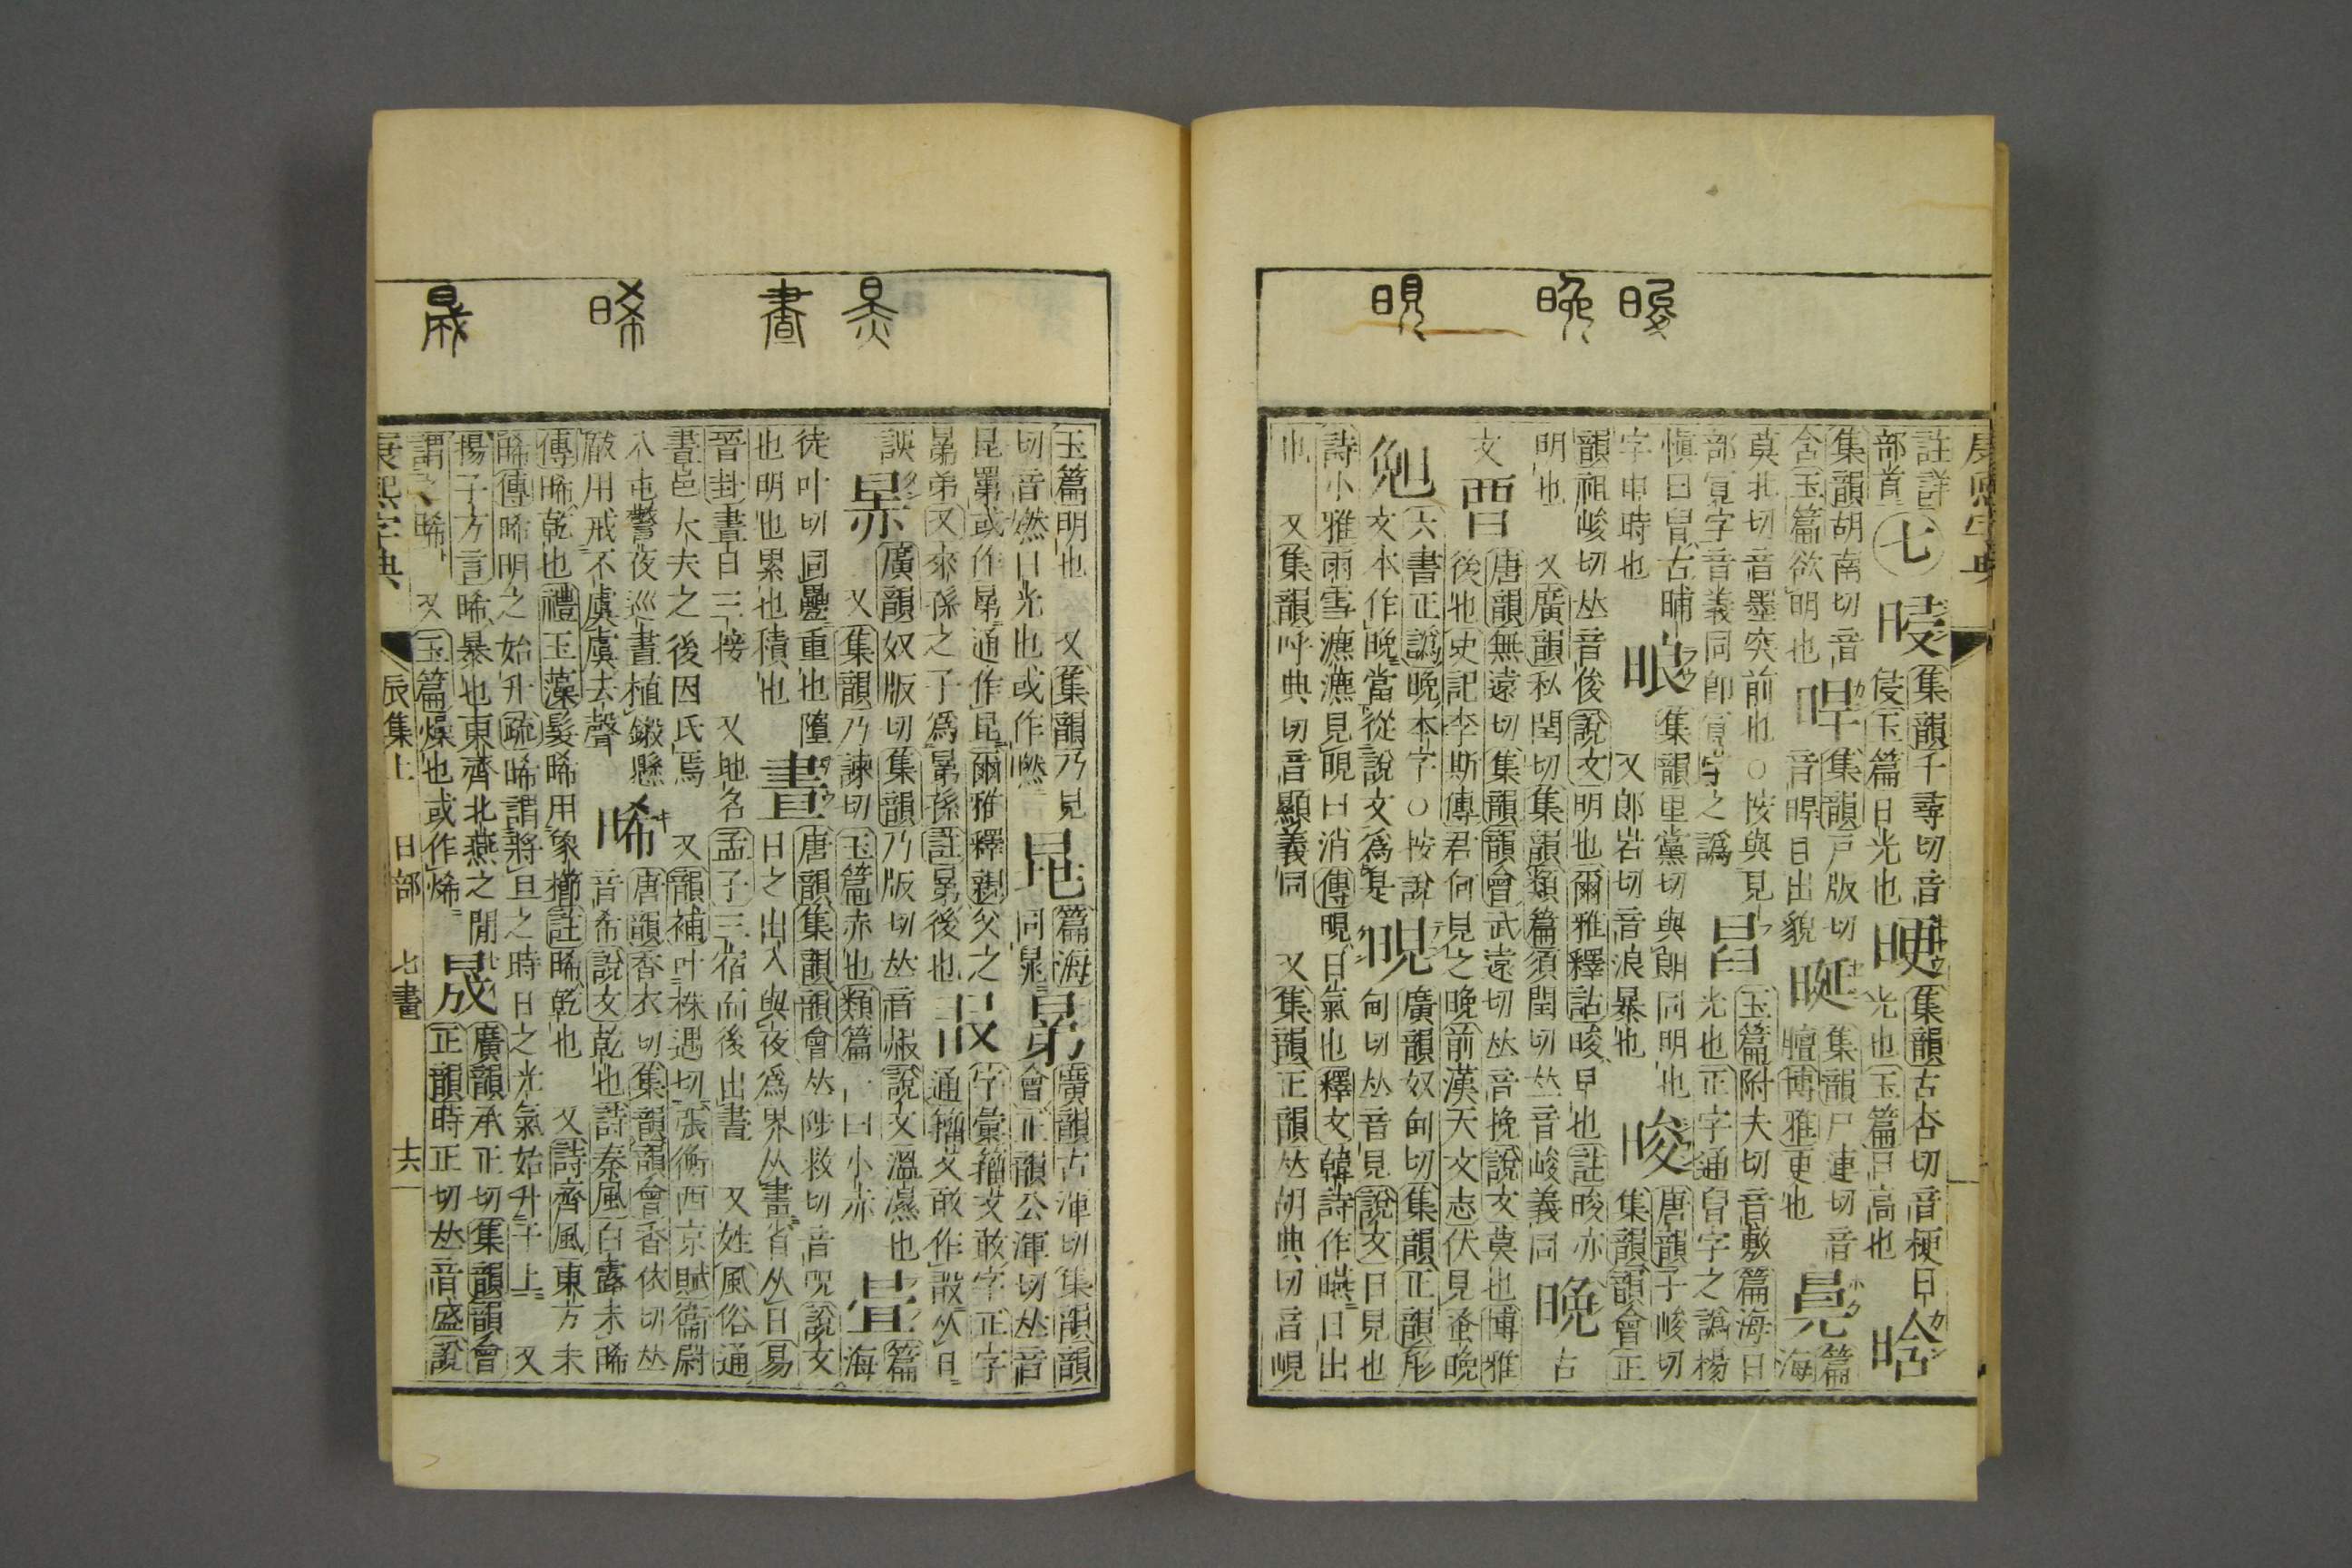 康熙字典
晙 晚 晛
註詳
部首 七 𣇝 集韻千尋切音
侵玉篇日光也 㬈 集韻古杏切音梗日
光也玉篇日高也 晗
集韻胡南切音
含玉篇欲明也 晘 集韻戸版切
音睅目出貌 㫟 集韻尸連切音
羶博雅更也 㫥 篇
海
莫北切音墨突前也○按與見
部𧠓字音義同卽𧠓字之譌 㫗 玉篇附夫切音敷篇海日
光也正字通㫗字之譌楊
愼曰㫗古晡
字申時也 㫰 集韻里黨切與朗同明也
又郎宕切音浪暴也 晙 唐韻子峻切
集韻韻會正
韻祖峻切𠀤音後說文明也爾雅釋詁晙早也註晙亦
明也 又廣韻私閏切集韻類篇須閏切𠀤音峻義同 晚 古
文 𣆶 唐韻無遠切集韻韻會武遠切𠀤音挽說文莫也博雅
後也史記李斯傳君何見之晚前漢天文志伏見蚤晚
𣆶 六書正譌晚本字○按說
文本作晚當從說文爲是 晛 廣韻奴甸切集韻正韻形
甸切𠀤音見說文日見也
詩小雅雨雪瀌瀌見晛曰消傳晛日氣也釋文韓詩作曣日出
也 又集韻呼典切音顯義同 又集韻正韻𠀤胡典切音峴
㬎 晝 晞 晟
玉篇明也 又集韻乃見
切音㸐日光也或作㬗 㫡 篇海
同晜 晜 廣韻古渾切集韻韻
會正韻公渾切𠀤音
昆罤或作晜通作昆爾雅釋親父之
晜弟又來孫之子爲晜孫註晜後也 㪚 字彙籀文敢字正字
通籀文敢作㪚从日
誤 㬀 廣韻奴版切集韻乃版切𠀤音赧說文溫濕也
又集韻乃諫切玉篇赤也類篇一曰小赤 㫷 篇
海
徒叶切同疊重也墮
也明也累也積也 晝 唐韻集韻韻會𠀤陟救切音咒說文
日之出入與夜爲界从畫省从日易
晉卦晝日三接 又地名孟子三宿而後出晝 又姓風俗通
晝邑大夫之後因氏焉 又韻補叶株遇切張衡西京賦衞尉
八屯警夜巡晝植鎩懸
㕹用戒不虞虞去聲 晞 唐韻香衣切集韻韻會香依切𠀤
音希說文乾也詩秦風白露未晞
傳晞乾也禮玉藻髮晞用象櫛註晞乾也 又詩齊風東方未
晞傳晞明之始升疏晞謂將旦之時日之光氣始升于上 又
揚子方言晞暴也東齊北燕之閒
謂之晞 又玉篇燥也或作烯 晟 廣韻承正切集韻韻會
正韻時正切𠀤音盛說
康熙字典 辰集上 日部 七畫 十六